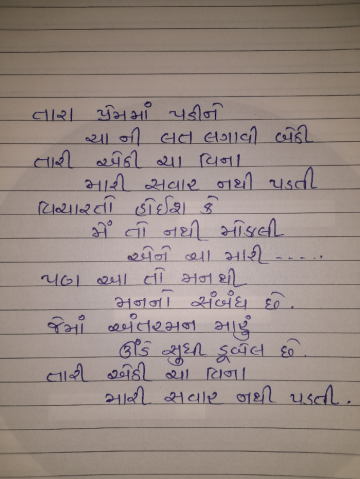 તારા પ્રેમમાં પડીને
ચા ની લત લગાવી બેઠી
તારી એઠી ચા વિના
મારી સવાર નથી પડતી
વિચારતો હોઈશ કે
મેં તો નથી મોકલી
એને ચા મારી .....
પણ આ તો મનથી
મનનો સંબંધ છે.
જેમાં અંતરમન મારું
ઊંડે સુધી ડૂબેલ છે.
તારી એઠી ચા વિના
મારી સવાર નથી પડતી.